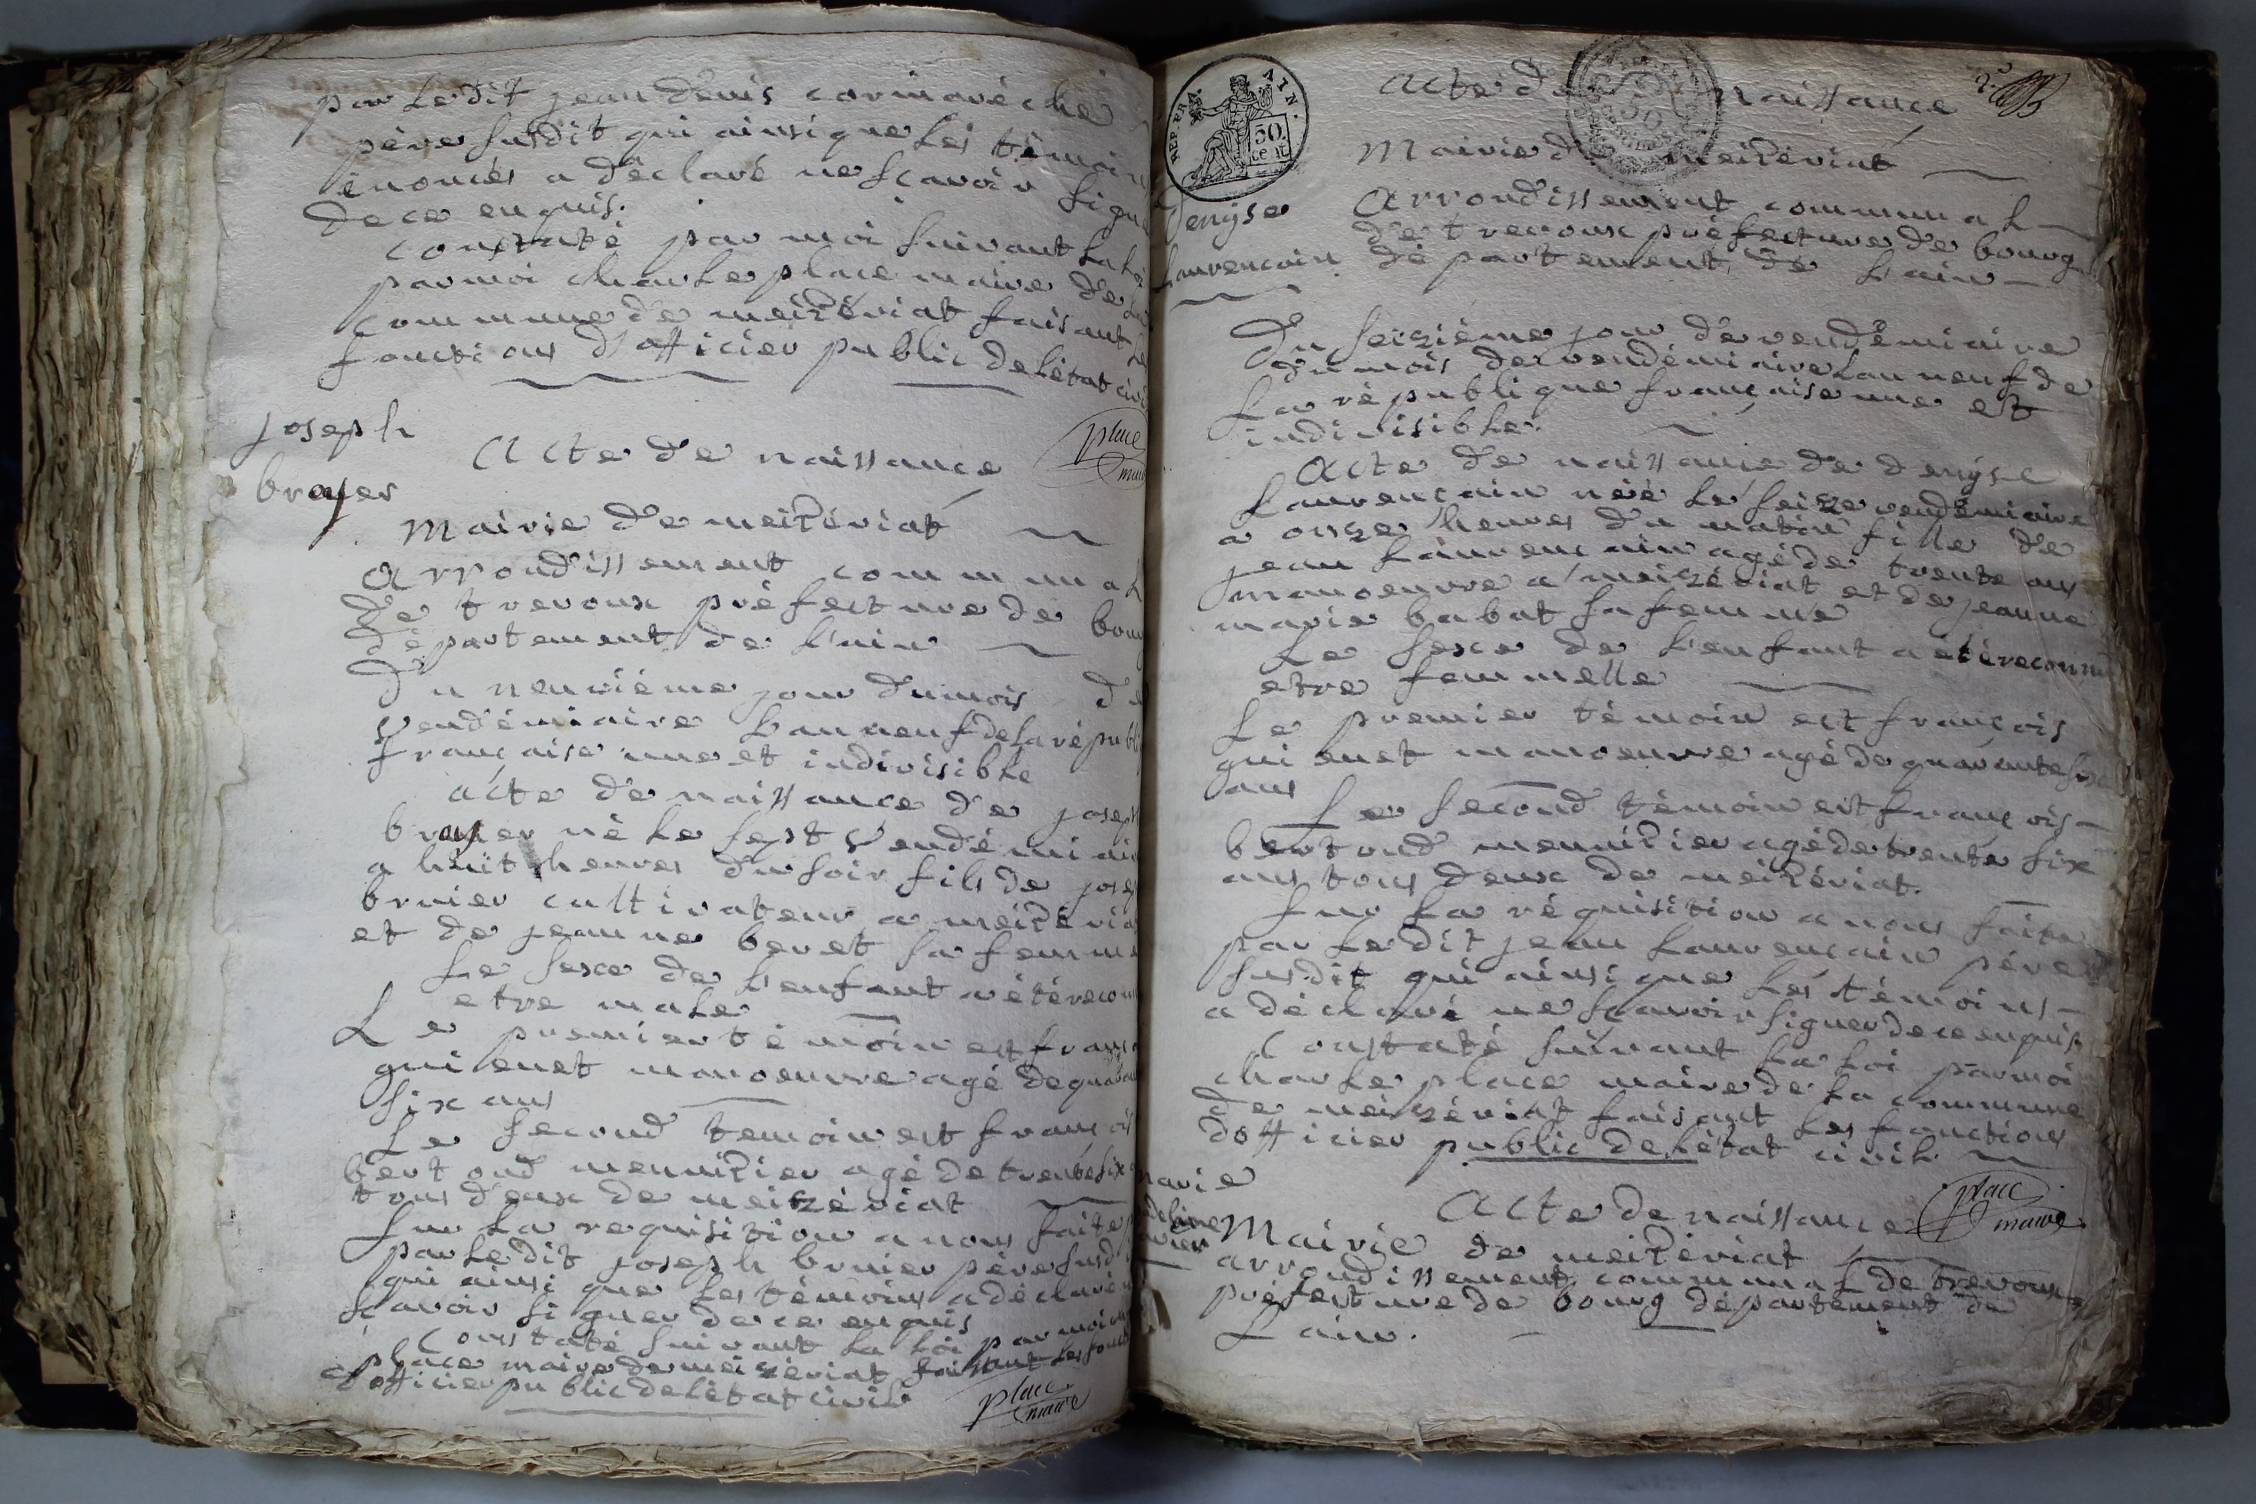 par Ledit jean denis cormareche
père susdit qui ainsi que Les témoins
énoncés a déclaré ne sçavoir signer
de ce enquis.
constaté par moi suivant La Loi
par moi charLe place maire de La
commune de meizériat faisant Les
fonctions d'officier public de Létat civil
place
maire
joseph
brayer
Acte de naissance
Mairie de meizériat
Arrondissement communaL
De trevoux préfecture de bourg
département de L'ain
Du neuvième jour du mois de
vendémiaire L'an neuf de La républi
française une et indivisibLe
acte de naissance de joseph
brayer né Le sept vendémiair
a huit heures du soir fils de joseph
bruier cultivateur a meizériat
et de jeanne beret sa femme
Le sexe de L'enfant a été reconn
etre maLe
Le premier témoin est franç
qui enet manoeuvre agé de quarant
six ans
Le second temoin est françois
bertoud meunitier agé de trente six
tous deux de meizériat
sur La requisition a nous faite
par Ledit joseph bruier père susd
qui ainsi que Les témoins a déclaré n
sçavoir signer de ce enquis
Constaté suivant La Loi par moi
place maire de meizériat faisant Les fonct
d'officier public de Létat civil
place
maire
REP. FRA. AIN.
50
cent.
Acte de naissance
Mairie de meizériat
Denyse
Laurençain
Arrondissement communaL
de trevoux préfecture de bourg
département de L'ain
Du seizième jour de vendémiaire
du mois de vendémiaire L'an neuf de
La république française une et
indivisibLe.
Acte de naissance de denyse
Laurençain née Le seize vendémiaire
a onze heures du matin fille de
jean Laurençain agé de trente ans
manoeuvre a meizériat et de jeanne
marie babat sa femme
Le sexe de L'enfant a été reconnu
etre femmelle
Le premier témoin est françois
qui enet manoeuvre agé de quarante six
ans
Le second témoin est françois
bertoud meunitier agé de trente six
ans tous deux de meizériat.
sur La réquisition a nous faite
par Ledit jean Laurençain père
susdit qui ainsi que Les témoins
a déclaré ne sçavoir signer de ce enquis
Constaté suivant La Loi par moi
charLe place maire de La commune
de meizériat faisant Les fonctions
d'officier public de Létat civil.
place
maire
marie
Acte de naissance
Mairie de meizériat
arrondissement communaL de trevoux
préfecture de bourg département de
L'ain.